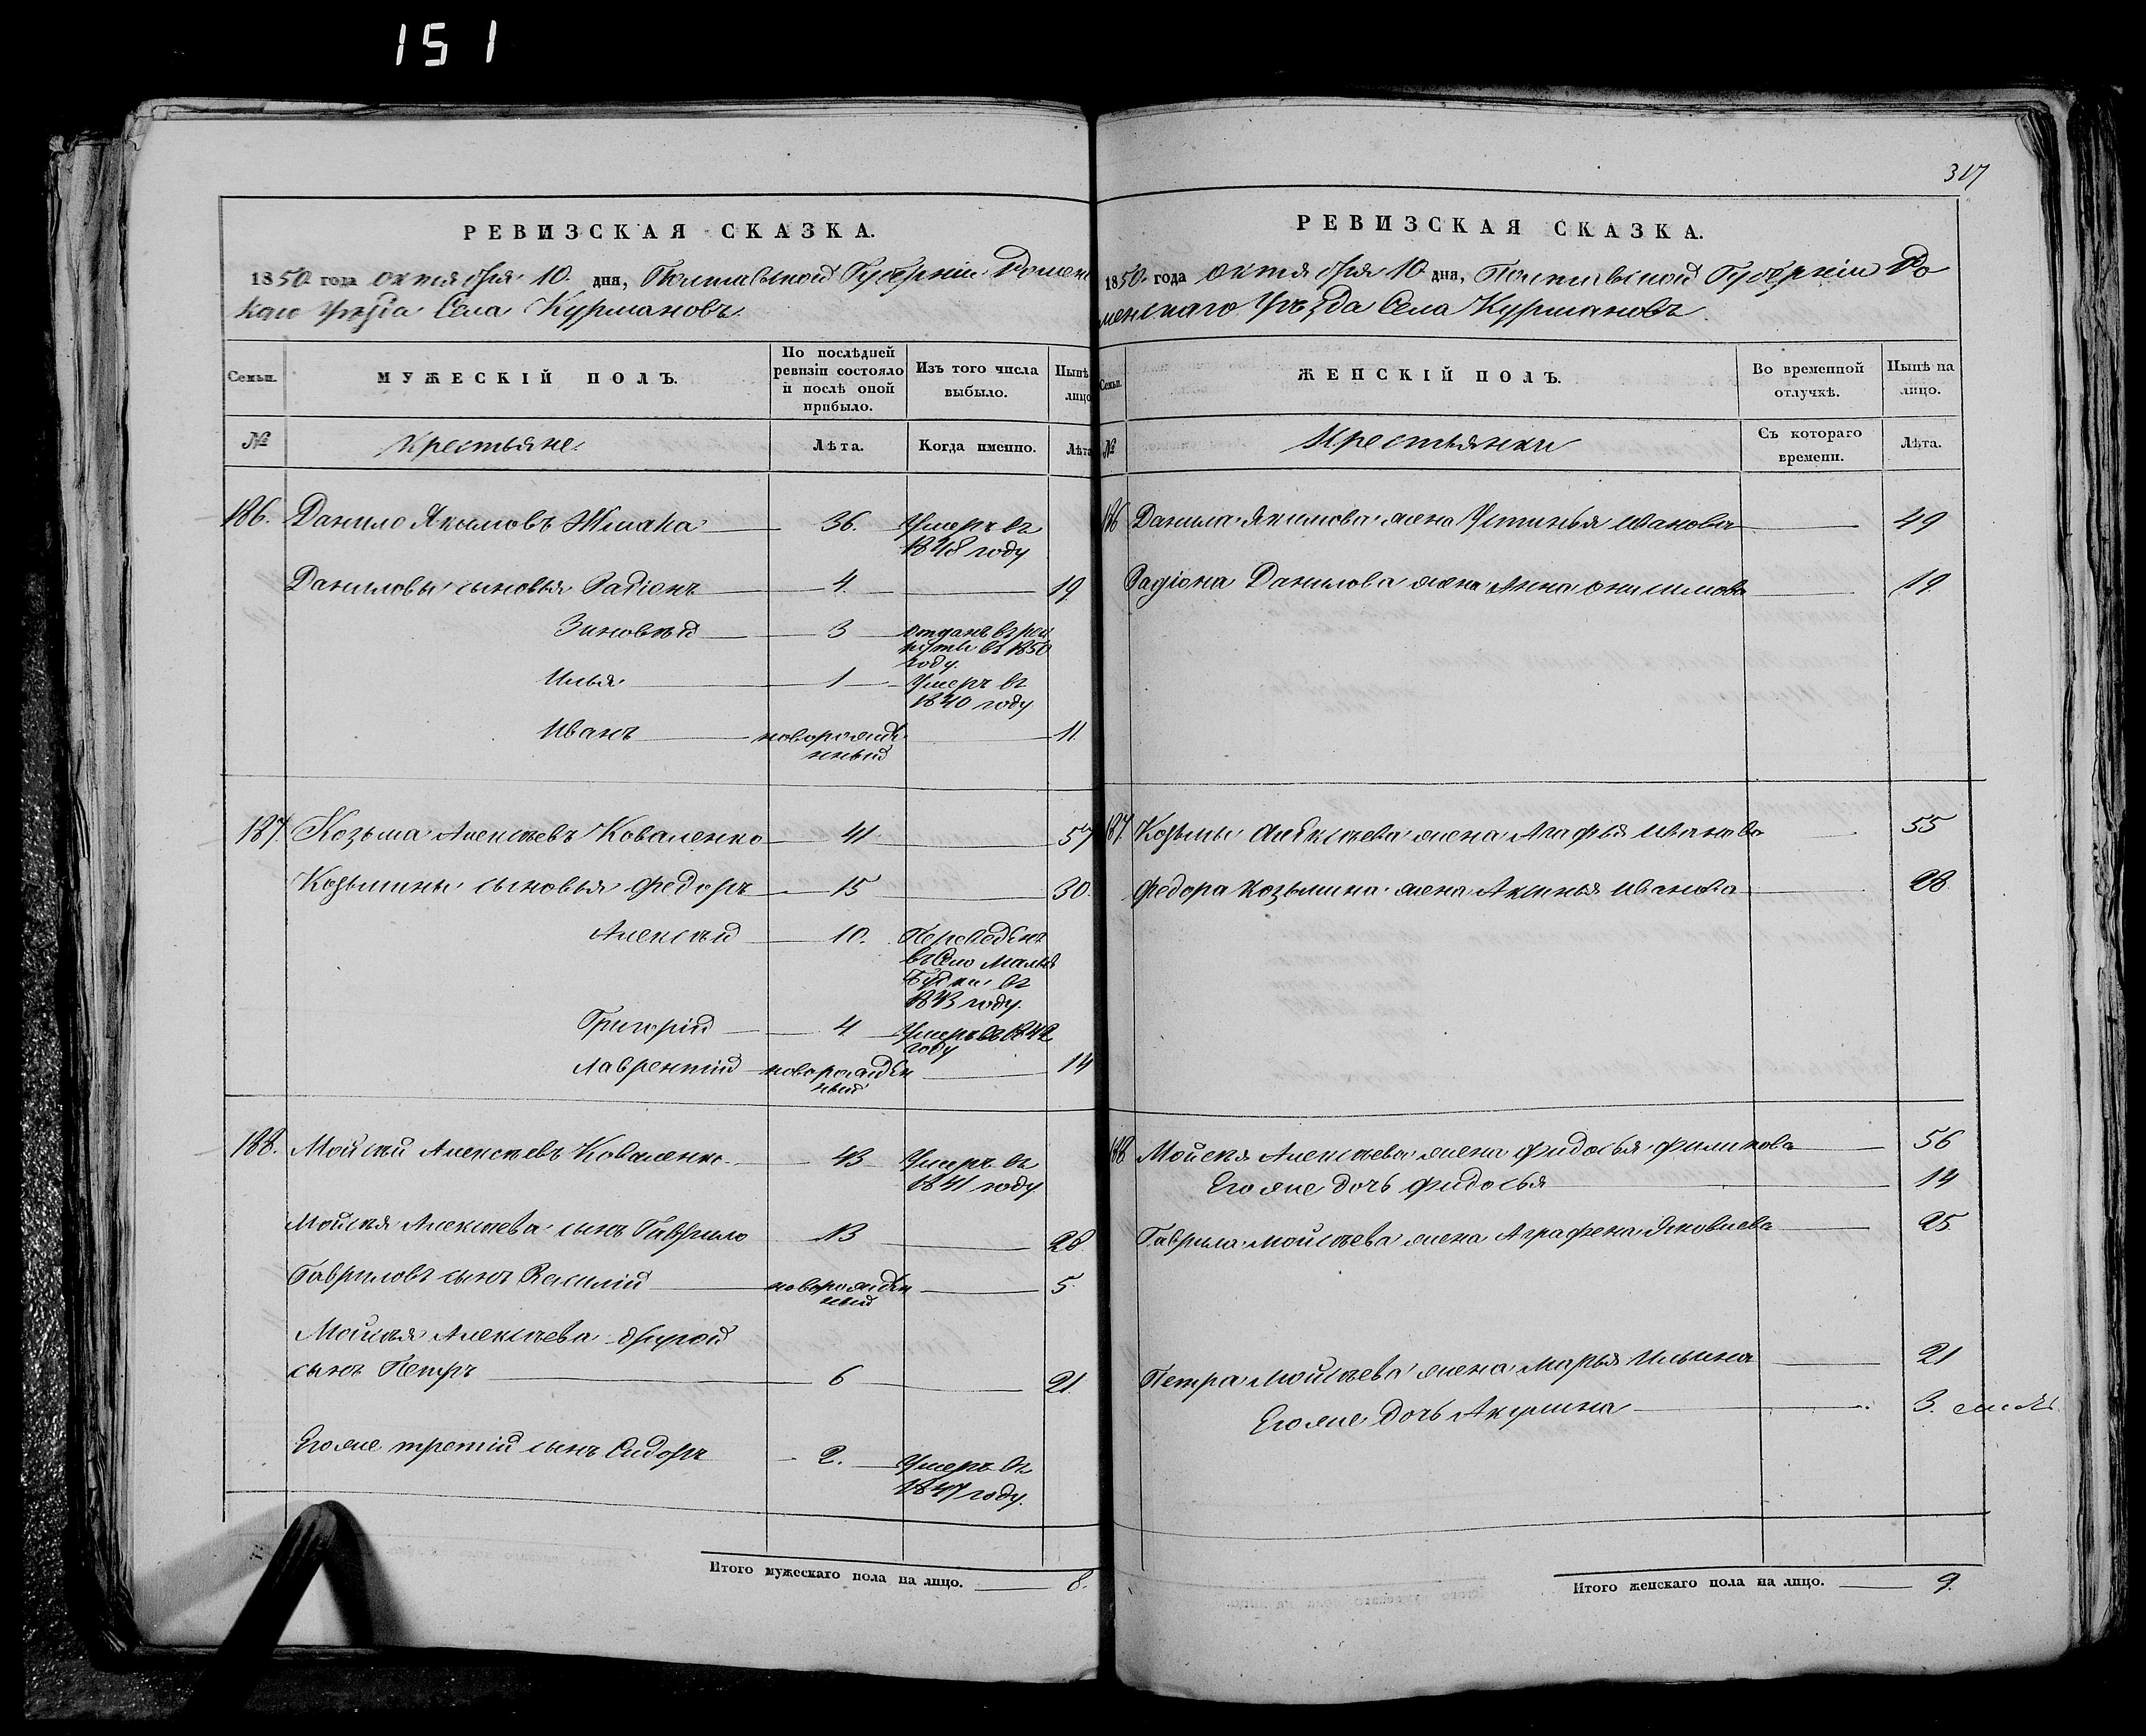 151
РЕВИЗСКАЯ СКАЗКА.
1850 года октября 10 дня, Полтавской Губерніи Ромен
каго Уѣзда Села Курмановъ
Семьи.
МУЖЕСКІЙ ПОЛЪ.
По послѣдней ревизіи состояло и послѣ оной прибыло.
Изъ того числа выбыло.
Нынѣ лицо
№
Крестьяне
Лѣта.
Когда именно.
Лѣта
186. Данило Якимовъ 36. Умеръ въ
1848 году
Даниловы сыновья Радіонъ 4 19
Зиновѣй 3 отданъ въ рек
руты въ 1850
году.
Илья 1 Умеръ въ
1840 году
Иванъ новорожде 11
нный
187. Козьма Алексѣевъ Коваленко 41 57
Козьмины сыновья Федоръ 15 30.
Алексѣй 10. Переведенъ
въ Село Малые
Будки въ
1843 году.
Григорій 4 Умеръ въ 1842
году
Лаврентій новорожден 14
ный
188. Мойсѣй Алексѣевъ Коваленко 43 Умеръ въ
1841 году
Мойсѣя Алексѣева сынъ Гаврило 13 28
Гавриловъ сынъ Василій новорожден 5
ный
Мойсѣя Алексѣева другой
сынъ Петръ 6 21
Егоже третій сынъ Сидоръ 2. Умеръ въ
1847 году.
Итого мужескаго пола на лицо. 8.
317
РЕВИЗСКАЯ СКАЗКА.
1850 года октября 10 дня, Полтавской Губерніи Ро
менскаго Уѣзда Села Курмановъ
Семьи.
ЖЕНСКІЙ ПОЛЪ.
Во временной отлучкѣ.
Нынѣ на лицо.
№
Крестьянки
Съ котораго времени.
Лѣта.
186 Данила Якимова жена Устинья Иванова 49
Радіона Данилова жена Анна Онисимова 19
187. Козьмы Алексѣева жена Агафья Иванова 55
Федора Козьмина жена Аксинья Иванова 28
188 Мойсѣя Алексѣева жена Фидосья Филипова 56
Егоже дочь Фидосья 14
Гаврила Мойсѣева жена Аграфена Яковлева 25
Петра Мойсѣева жена Марья Ильина 21
Егоже дочь Акулина 3.
Итого женскаго пола на лицо. 9.